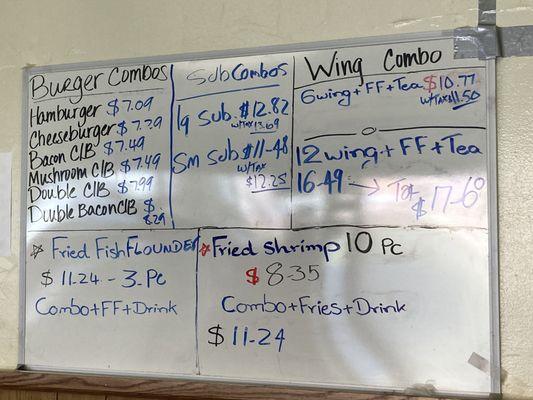 Burger Combos
Hamburger $7.09
Cheeseburger $7.29
Bacon C/B $7.49
Mushroom C/B $7.49
Double C/B $7.99
Double Bacon C/B $
8.29
Sub Combos
lg Sub. $12.82
w/TAX 13.69
Sm Sub $11-48
w/TAX
$12.25
Wing Combo
6wing+FF+Tea $10.77
w/TAX $11.50
12 wing+FF+Tea
16-49 → Tot
$17-60
☆ Fried Fish FLOUNDER
$11.24 - 3.Pc
Combo+FF+Drink
☆ Fried Shrimp 10 Pc
$8-35
Combo+Fries+Drink
$11-24